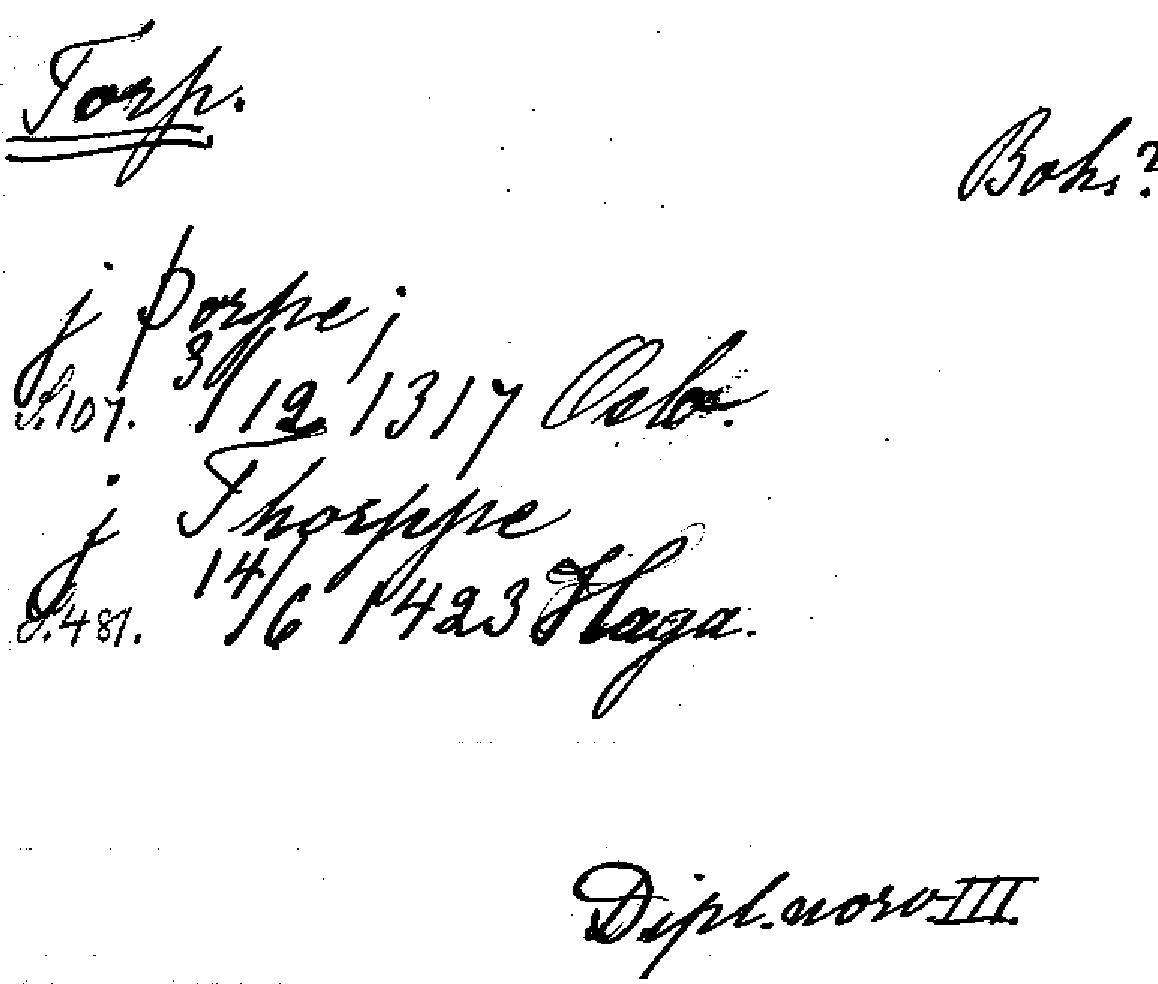 Torp.
Boh.?
j þorpe j
S. 107. 3/12 1317 Oslo.
j Thorppe
S. 481. 14/6 1423 Haga.
Dipl. norv III.